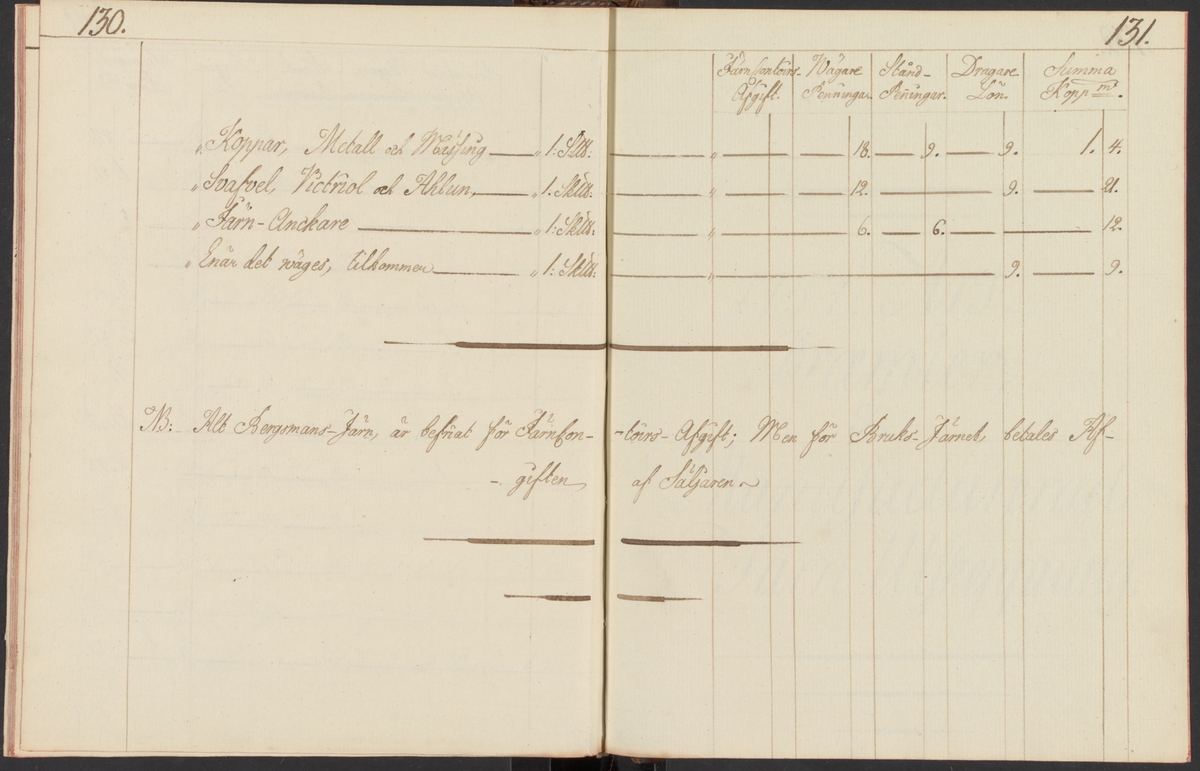 130.
131.
Järncontoirs Wägare Stånd- Dragare Summa
Afgift. Penningar. Peningar. Lön. Kopp mt.
„ Koppar, Metall och Messing „ 1: Sk℔. „ 18. 9. 9. 1. 4.
„ Svafvel, Victriol och Ahlun, „ 1. Sk℔. „ 12. 9. 21.
„ Järn-Anckare „ 1: Sk℔. „ 6. 6. 12.
„ Enär det wäges, tilkommer „ 1: Sk℔. „ 9. 9.
NB: Alt Bergsmans-Järn, är befriat för Järncon- -toirs-Afgift; Men för Bruks-Järnet, betales Af-
-giften af Säljaren